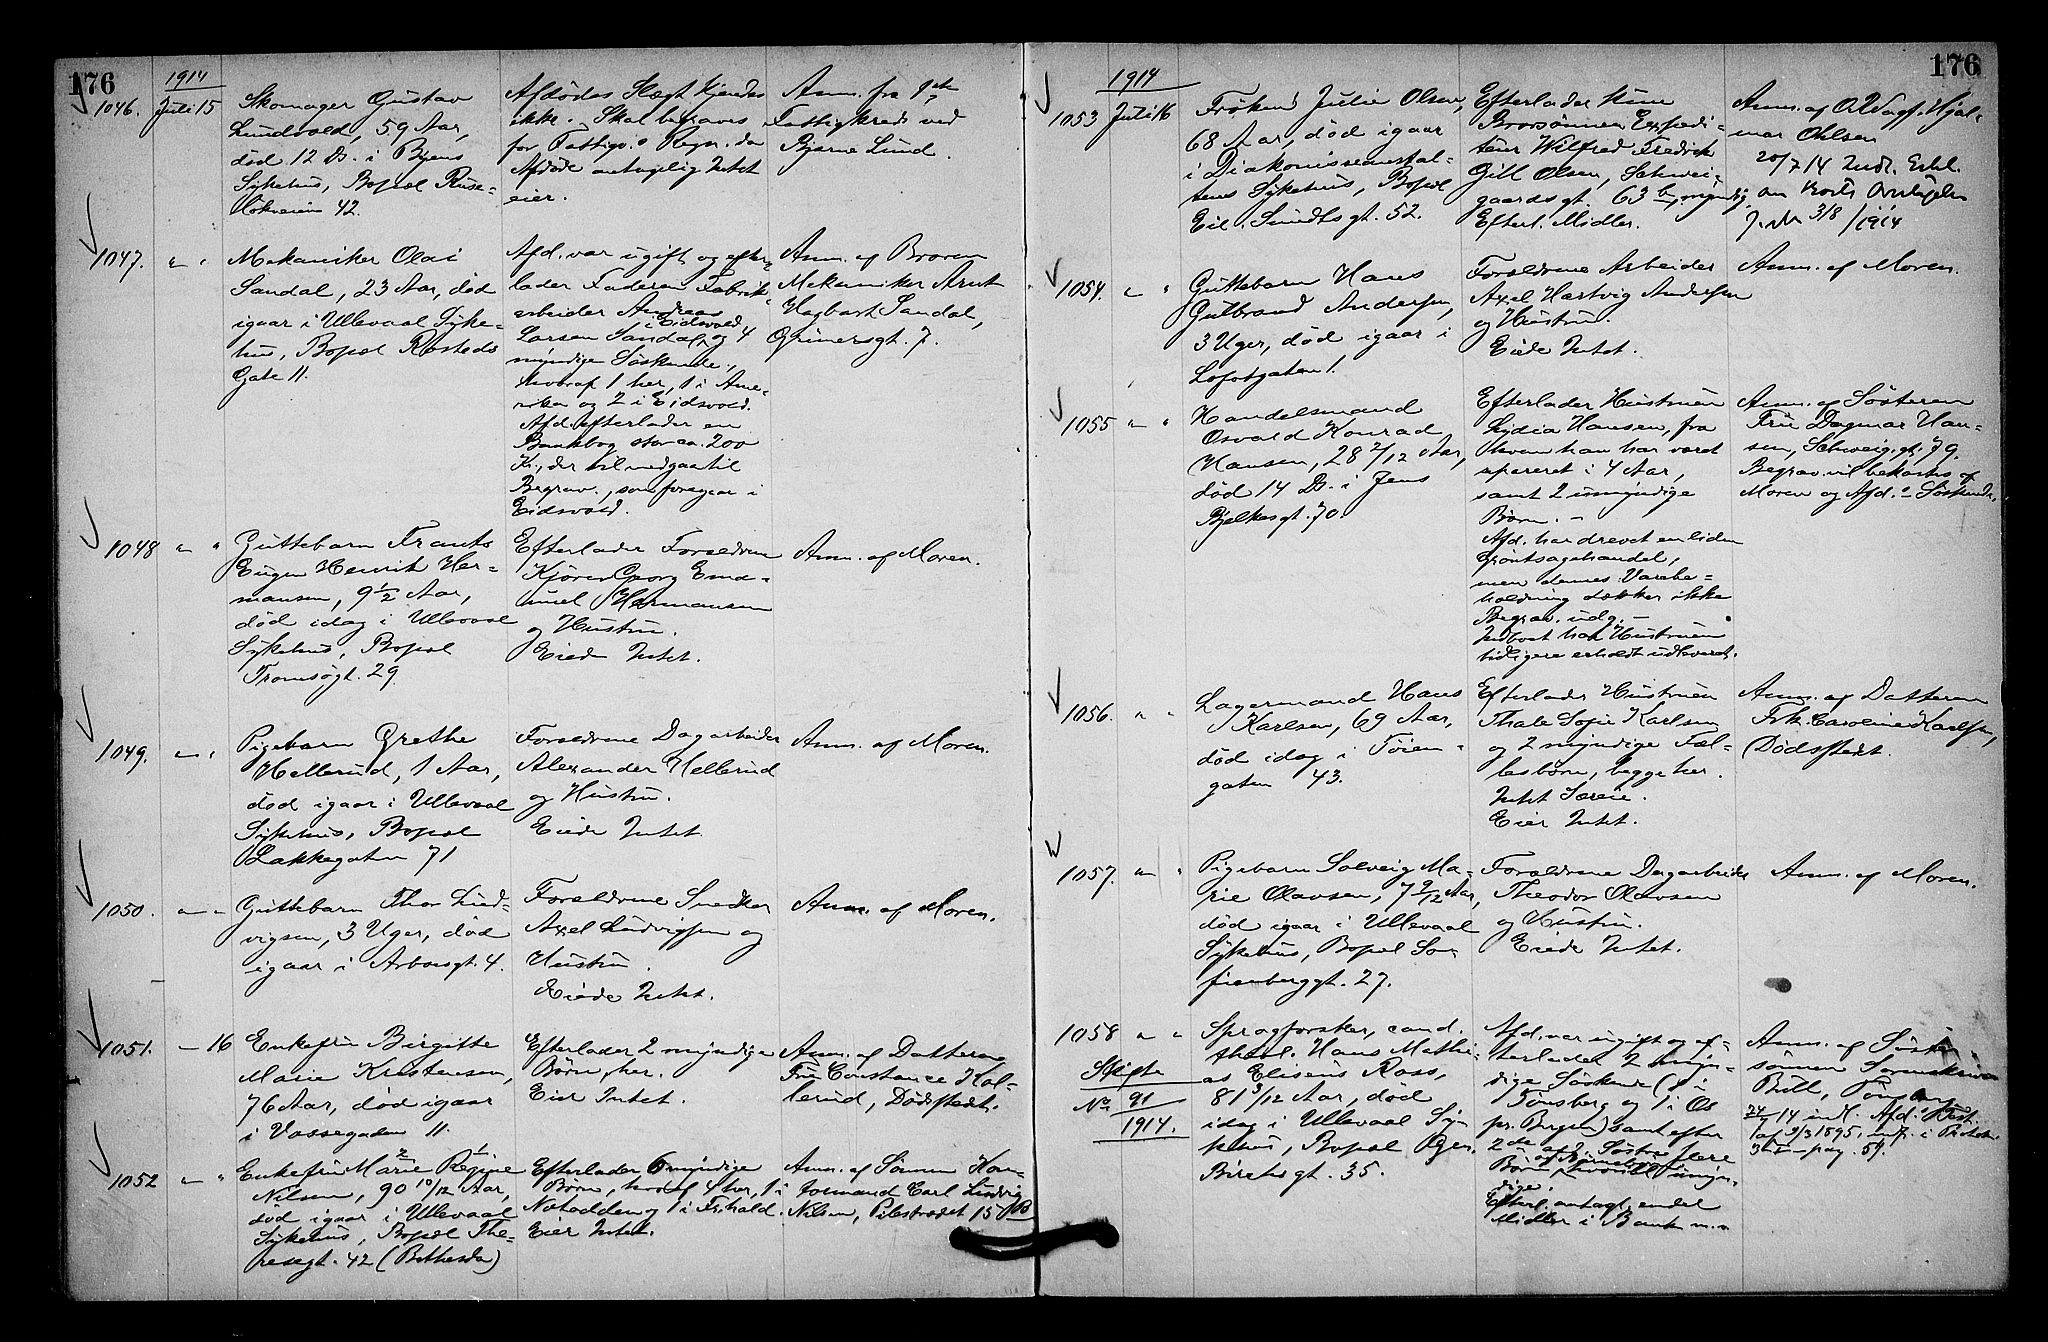 176
1914
1046. Juli 15
Skomager Gustav
Lundvold, 59 Aar,
død 12 Ds. i Byens
Sykehus, Bopæl Ruse-
løkveien 42.
Afdødes Slægt kjendes
ikke. Skal begraves
for Fattigv.s Regn. da
Afdøde antagelig Intet
eier.
Anm. fra 9de
Fattigkreds ved
Bjarne Lund.
1047. " "
Mekaniker Olai
Sandal, 23 Aar, død
igaar i Ullevaal Syke-
hus, Bopæl Rosteds
Gate 11.
Afd. var ugift og efter-
lader Faderen Fabrik-
arbeider Andreas
Larsen Sandal, i Eidsvold, og 4
myndige Søskende,
hvoraf 1 her, 1 i Ame-
rika og 2 i Eidsvold.
Afd. efterlader en
Bankbog stor ca. 200
Kr., der vil medgaa til
Begrav., som foregaar i
Eidsvold.
Anm. af Broren
Mekaniker Arnt
Hagbart Sandal,
Grünersgt. 7.
1048 " "
Guttebarn Frants
Eugen Henrik Her-
mansen, 9 1/2 Aar,
død idag i Ullevaal
Sykehus, Bopæl
Tromsøgt. 29
Efterlader Forældrene
Kjører Georg Ema-
nuel Hermansen
og Hustru.
Eiede Intet.
Anm. af Moren.
1049. " "
Pigebarn Grethe
Hellerud, 1 Aar,
død igaar i Ullevaal
Sykehus, Bopæl
Lakkegaten 71
Forældrene Dagarbeider
Alexander Hellerud
og Hustru.
Eiede Intet.
Anm. af Moren.
1050. " "
Guttebarn Thor Lud-
vigsen, 3 Uger, død
igaar i Arbosgt. 4.
Forældrene Snedker
Axel Ludvigsen og
Hustru.
Eiede Intet.
Anm. af Moren.
1051. - 16
Enkefru Birgitte
Marie Kristensen,
76 Aar, død igaar
i Vossegaten 11.
Efterlader 2 myndige
Børn, her.
Eier Intet.
Anm. af Datteren
Fru Constance Kol-
lerud, Dødsstedt.
1052 " "
Enkefru Marie Regine
Nilsen, 90 10/12 Aar,
død igaar i Ullevaal
Sykehus, Bopæl The-
resegt. 42 (Bethesda)
Efterlader 6 myndige
Børn, hvoraf 4 her, 1 i
Notodden og 1 i Frhald.
Eier Intet.
Anm. af Sønnen Kon-
tormand Carl Ludvig
Nilsen, Pilestrædet 75
176
1914
1053 Juli 16
Frøken Julie Olsen,
68 Aar, død igaar
i Diakonisseanstal-
tens Sykehus, Bopæl
Eil. Sundtsgt. 52.
Efterlader kun
Brorsønnen Expedi-
tør Wilfred Fredrik
Gill Olsen, Schwei-
gaardsgt. 63 b, myndig
Efterl. Midler.
Anm. af O.R.Sagf. Hjal-
mar Ohlsen
20/7 14 Indl. Erkl.
om Boets Overtagelse
J. Nr 3/8 /1914
1054. " "
Guttebarn Hans
Gulbrand Andersen,
3 Uger, død igaar i
Lofotgaten 1.
Forældrene Arbeider
Axel Hartvig Andersen
og Hustru.
Eiede Intet.
Anm. af Moren.
1055 " "
Handelsmand
Osvald Konrad
Hansen, 28 7/12 Aar,
død 14 Ds. i Jens
Bjelkesgt. 70.
Efterlader Hustruen
Lydia Hansen, fra
hvem han har været
separeret i 4 Aar,
samt 2 umyndige
Børn. -
Afd. har drevet en liden
Grøntsagshandel,
men dennes Varebe-
holdning dækker ikke
Begrav. udg. -
Indboet har Hustruen
tidligere erholdt udleveret.
Anm. af Søsteren
Fru Dagmar Han-
sen, Schweig.gt. 79.
Begrav. vil bekostes af
Moren og Afd.s Søskende.
1056. " "
Lagermand Hans
Karlsen, 69 Aar,
død idag i Tøien-
gaten 43.
Efterlader Hustruen
Thale Sofie Karlsen
og 2 myndige Fæl-
lesbørn, begge her.
Intet Særeie.
Eier Intet.
Anm. af Datteren
Frk. Caroline Karlsen,
Dødsstedt.
1057. " "
Pigebarn Solveig Ma-
rie Olavsen, 7 2/12 Aar,
død igaar i Ullevaal
Sykehus, Bopæl So-
fienberggt. 27.
Forældrene Dagarbeider
Theodor Olavsen
og Hustru.
Eiede Intet.
Anm. af Moren.
1058 " "
Skifte
No 91
1914.
Sprogforsker, cand.
theol. Hans Mathi-
as Elisæus Ross,
81 3/12 Aar, død
idag i Ullevaal Sy-
kehus, Bopæl Ben.
Birchsgt. 35.
Afd. var ugift og ef-
terlader 2 myn-
dige Søskende (1 i
Tønsberg og 1 i Os
pr. Bergen) samt efter
2de afd. Søstre flere
Børn
dige.
Efterl. antagl. endel
Midler i Bank m.m
Anm. af Søster-
sønnen Sorenskriver
Bill, Tønsberg
24/7 14 indl. Afd.s Test.
af 2/3 1895, indf. i Protok.
pag. 59.